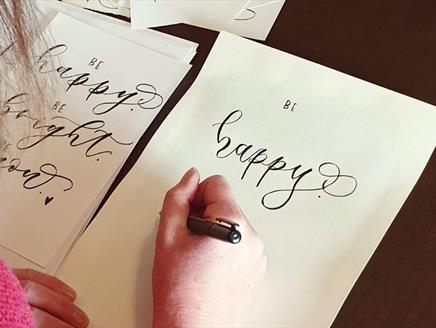 BE
happy.
BE
bright.
BE
you.
BE
happy.